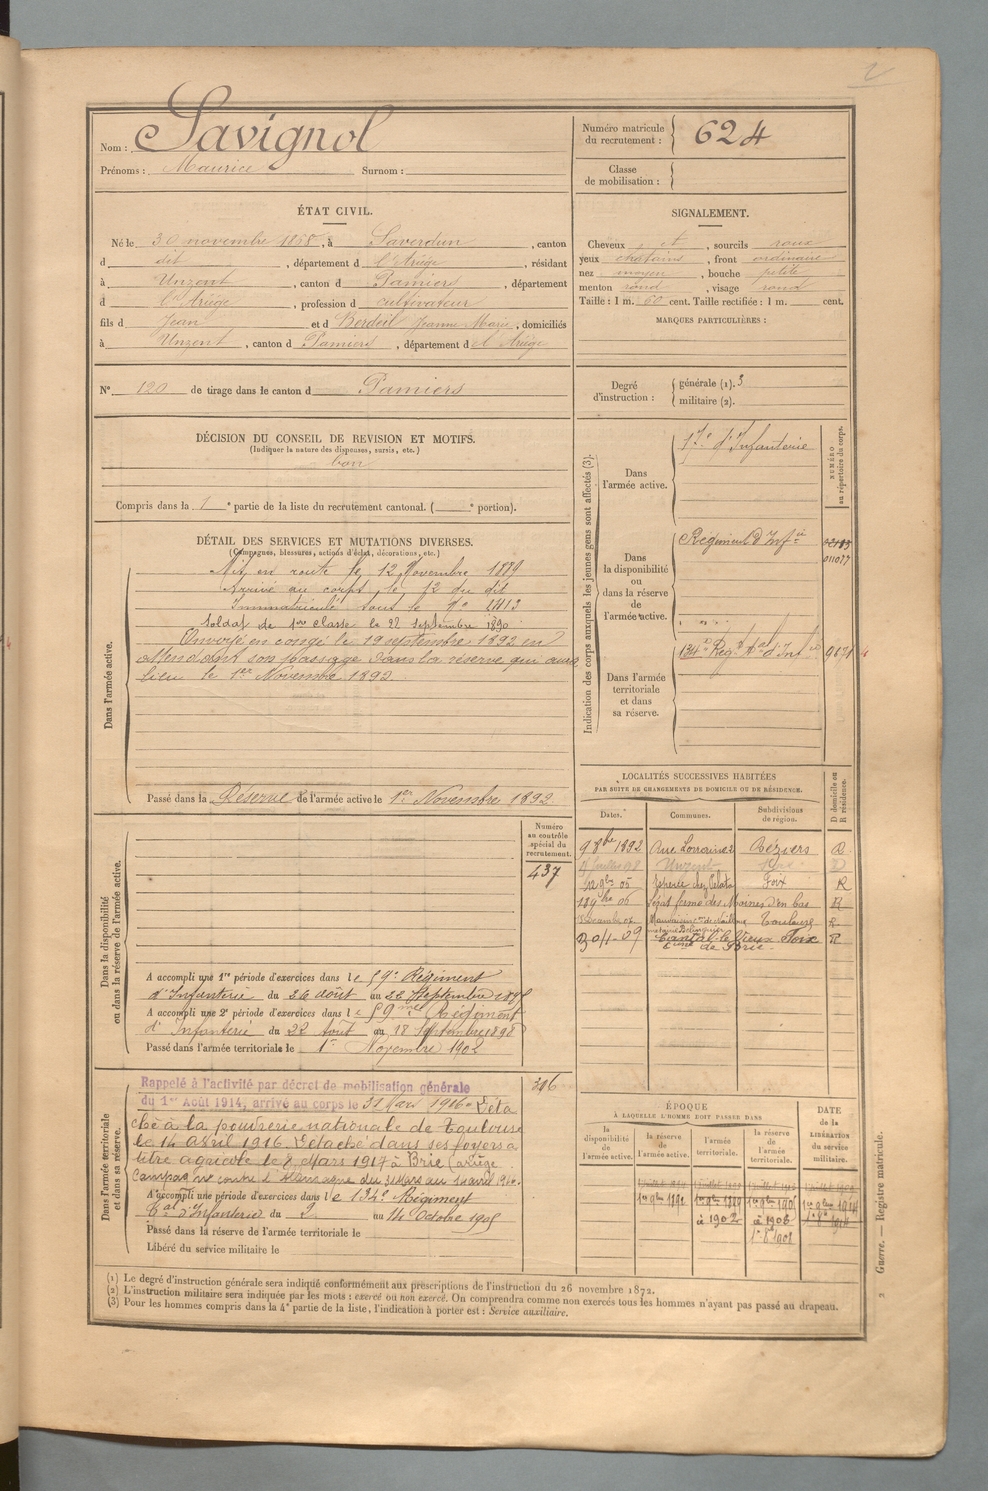 2
Nom : Savignol
Prénoms : Maurice Surnom :
Numéro matricule du recrutement : 624
Classe de mobilisation :
ÉTAT CIVIL.
Né le 30 novembre 1868, à Saverdun, canton
d dit, département d l'Ariège, résidant
à Unzent, canton d Pamiers, département
d l'Ariège, profession d cultivateur
fils d Jean et d Berdeil Jeanne Marie, domiciliés
à Unzent, canton d Pamiers, département d el Ariège
N° 120 de tirage dans le canton d Pamiers
SIGNALEMENT.
Cheveux et, sourcils roux
yeux chatains, front ordinaire
nez moyen, bouche petite
menton rond, visage rond
Taille : 1 m. 60 cent. Taille rectifiée : 1 m. cent.
MARQUES PARTICULIÈRES :
Degré d'instruction : générale (1). 3
militaire (2).
DÉCISION DU CONSEIL DE REVISION ET MOTIFS.
(Indiquer la nature des dispenses, sursis, etc.)
bon
Compris dans la 1e partie de la liste du recrutement cantonal. ( e portion).
DÉTAIL DES SERVICES ET MUTATIONS DIVERSES.
(Campagnes, blessures, actions d'éclat, décorations, etc.)
Dans l'armée active.
Mis en route le 12 Novembre 1889
Arrivé au corps le 12 du dit
Immatriculé sous le n°
Soldat de 1ere classe le 22 septembre 1890
Envoyé en congé le 19 septembre 1892 en
attendant son passage dans la réserve qui aura
lieu le 1er Novembre 1892.
Passé dans la Réserve de l'armée active le 1er Novembre 1892.
Indication des corps auxquels les jeunes gens sont affectés (3).
NUMÉRO au répertoire du corps.
Dans l'armée active.
17e d'Infanterie
Dans la disponibilité ou dans la réserve de l'armée active.
Régiment d'Infie
011077
Dans l'armée territoriale et dans sa réserve.
134e Regt tal d'Infie
LOCALITÉS SUCCESSIVES HABITÉES
PAR SUITE DE CHANGEMENTS DE DOMICILE OU DE RÉSIDENCE.
Dates. Communes. Subdivisions de région. D domicile ou R résidence.
9 8bre 1892 rue Lorraine 2 Béziers R
Unzent
Foix R
18 9bre 06 ferme des Moines d'en bas R
Toulouse R
30-4-09 Cantal-le Vieux Foix R
Cne de Brie
Dans la disponibilité ou dans la réserve de l'armée active.
Numéro au contrôle spécial du recrutement.
437
A accompli une 1re période d'exercices dans le 59e Régiment
d'Infanterie du 26 août au 22 Septembre 1895
A accompli une 2e période d'exercices dans le 59me Régiment
d'Infanterie du 22 août au 18 Septembre 1898
Passé dans l'armée territoriale le 1er Novembre 1902
Dans l'armée territoriale et dans sa réserve.
Rappelé à l'activité par décret de mobilisation générale
du 1er Août 1914, arrivé au corps le 31 Mars 1916. Déta
ché à la poudrerie nationale de Toulouse
le 14 avril 1916. Détaché dans ses foyers à
titre agricole le 8 Mars 1917 à Brie (Ariège
Campagne contre l'Allemagne du 31 Mars au
A accompli une période d'exercices dans le 134e Régiment
tal d'Infanterie du 2 au 14 Octobre 1905
Passé dans la réserve de l'armée territoriale le
Libéré du service militaire le
ÉPOQUE
À LAQUELLE L'HOMME DOIT PASSER DANS
la disponibilité de l'armée active.
la réserve de l'armée active.
l'armée territoriale.
la réserve de l'armée territoriale.
DATE de la LIBÉRATION du service militaire.
1er 9bre 1892
à 1902
à 1908
(1) Le degré d'instruction générale sera indiqué conformément aux prescriptions de l'instruction du 26 novembre 1872.
(2) L'instruction militaire sera indiquée par les mots : exercé ou non exercé. On comprendra comme non exercés tous les hommes n'ayant pas passé au drapeau.
(3) Pour les hommes compris dans la 4e partie de la liste, l'indication à porter est : Service auxiliaire.
2 Guerre. — Registre matricule.